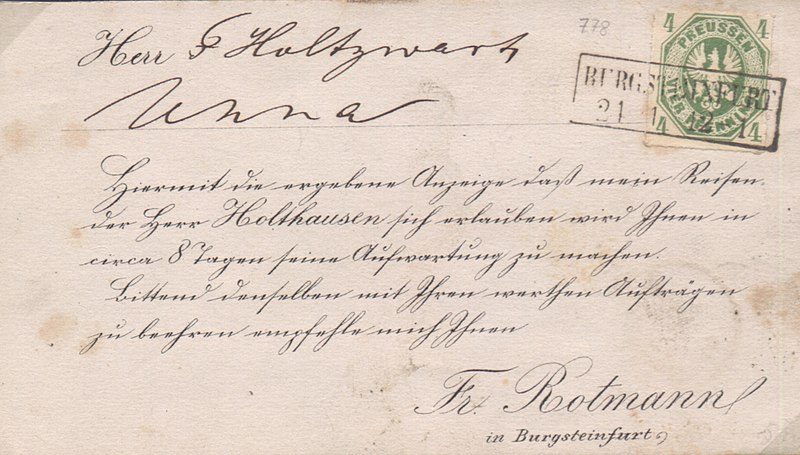 778
Herr F Holtzwart
Unna
4 PREUSSEN 4
VIER PFENNIGE
4 4
BURGSTEINFURT
21 1 12-1
Hiermit die ergebene Anzeige daß mein Reisen-
der Herr Holthausen sich erlauben wird Ihnen in
circa 8 Tagen seine Aufwartung zu machen.
Bittend denselben mit Ihren werthen Aufträgen
zu beehren empfehle mich Ihnen
Fr. Rotmann
in Burgsteinfurt